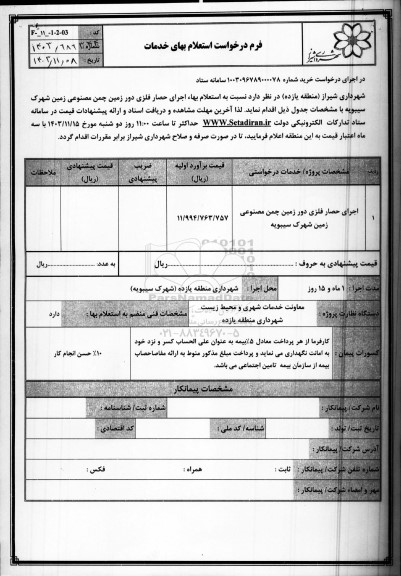 فرم درخواست استعلام بهای خدمات
کد : F-11-1-2-03
شماره : ۱۴۰۳/۶۸۶
تاریخ : ۱۴۰۳/۱۱/۰۸
در اجرای درخواست خرید شماره ۱۰۰۳۰۹۶۷۸۹۰۰۰۰۷۸ سامانه ستاد
شهرداری شیراز (منطقه یازده) در نظر دارد نسبت به استعلام بهاء اجرای حصار فلزی دور زمین چمن مصنوعی زمین شهرک
سیبویه با مشخصات جدول ذیل اقدام نماید. لذا آخرین مهلت مشاهده و دریافت اسناد و ارائه پیشنهادات قیمت در سامانه
ستاد تدارکات الکترونیکی دولت WWW.Setadiran.ir حداکثر تا ساعت ۱۱:۰۰ روز دو شنبه مورخ ۱۴۰۳/۱۱/۱۵ با سه
ماه اعتبار قیمت به این منطقه اعلام فرمایید، تا در صورت صرفه و صلاح شهرداری شیراز برابر مقررات اقدام گردد.
ردیف مشخصات پروژه/ خدمات درخواستی قیمت برآورد اولیه (ریال) ضریب پیشنهادی قیمت پیشنهادی (ریال) ملاحظات
۱ اجرای حصار فلزی دور زمین چمن مصنوعی زمین شهرک سیبویه ۱۱/۹۹۴/۷۶۳/۷۵۷
قیمت پیشنهادی به حروف : ریال به عدد: ریال
مدت اجرا : ۱ ماه و ۱۵ روز محل اجرا : شهرداری منطقه یازده (شهرک سیبویه)
دستگاه نظارت پروژه : معاونت خدمات شهری و محیط زیست شهرداری منطقه یازده مشخصات فنی منضم به استعلام بها : دارد
کسورات پیمان : کارفرما از هر پرداخت معادل ۵٪بیمه به عنوان علی الحساب کسر و نزد خود
به امانت نگهداری می نماید و پرداخت مبلغ مذکور منوط به ارائه مفاصاحساب
بیمه از سازمان بیمه تامین اجتماعی می باشد.
۱۰٪ حسن انجام کار
مشخصات پیمانکار
نام شرکت/ پیمانکار : شماره ثبت/ شناسنامه :
تاریخ ثبت/ تولد : شناسه/ کد ملی : کد اقتصادی :
آدرس شرکت/ پیمانکار :
شماره تلفن شرکت/ پیمانکار : ثابت : همراه : فکس :
مهر و امضاء شرکت/ پیمانکار :
ParsNamadData
۰۲۱-۸۸۳۴۹۶۷۰-۵